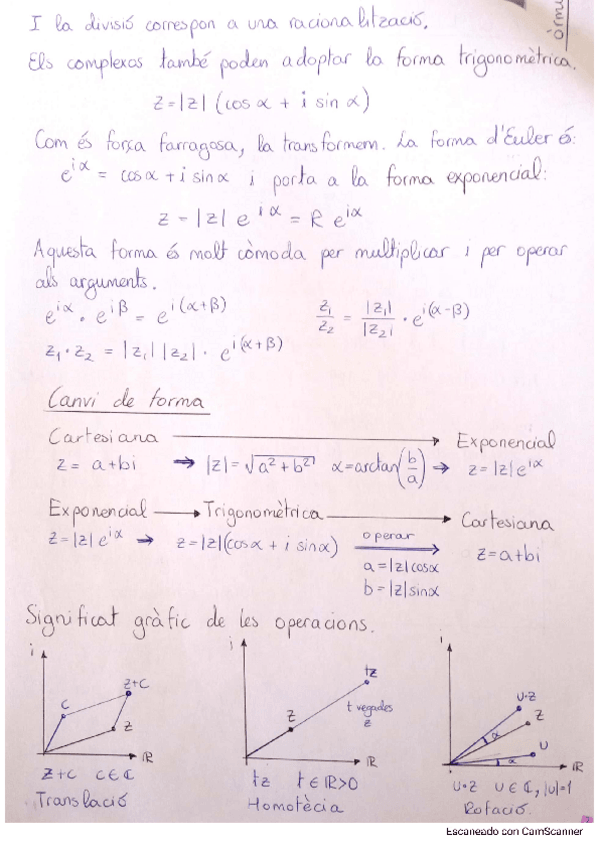 I la divisió correspon a una racionalització.
Els complexos també poden adoptar la forma trigonomètrica.
z = |z| (cos α + i sin α)
Com és força farragosa, la transformem. La forma d'Euler és:
e^{iα} = cos α + i sin α i porta a la forma exponencial:
z = |z| e^{iα} = R e^{iα}
Aquesta forma és molt còmoda per multiplicar i per operar
als arguments.
e^{iα} · e^{iβ} = e^{i(α+β)} z₁/z₂ = |z₁|/|z₂| · e^{i(α-β)}
z₁ · z₂ = |z₁| |z₂| · e^{i(α+β)}
Canvi de forma
Cartesiana → Exponencial
z = a+bi ⇒ |z| = √(a²+b²) α = arctan(b/a) ⇒ z = |z| e^{iα}
Exponencial → Trigonomètrica → Cartesiana
z = |z| e^{iα} ⇒ z = |z| (cos α + i sin α) operar z = a+bi
a = |z| cos α
b = |z| sin α
Significat gràfic de les operacions.
i i i
z+c tz u·z
c z t vegades z z
z α u
α
ℝ ℝ ℝ
z+c c ∈ ℂ tz t ∈ ℝ>0 u·z u ∈ ℂ, |u|=1
Translació Homotècia Rotació.
Escaneado con CamScanner